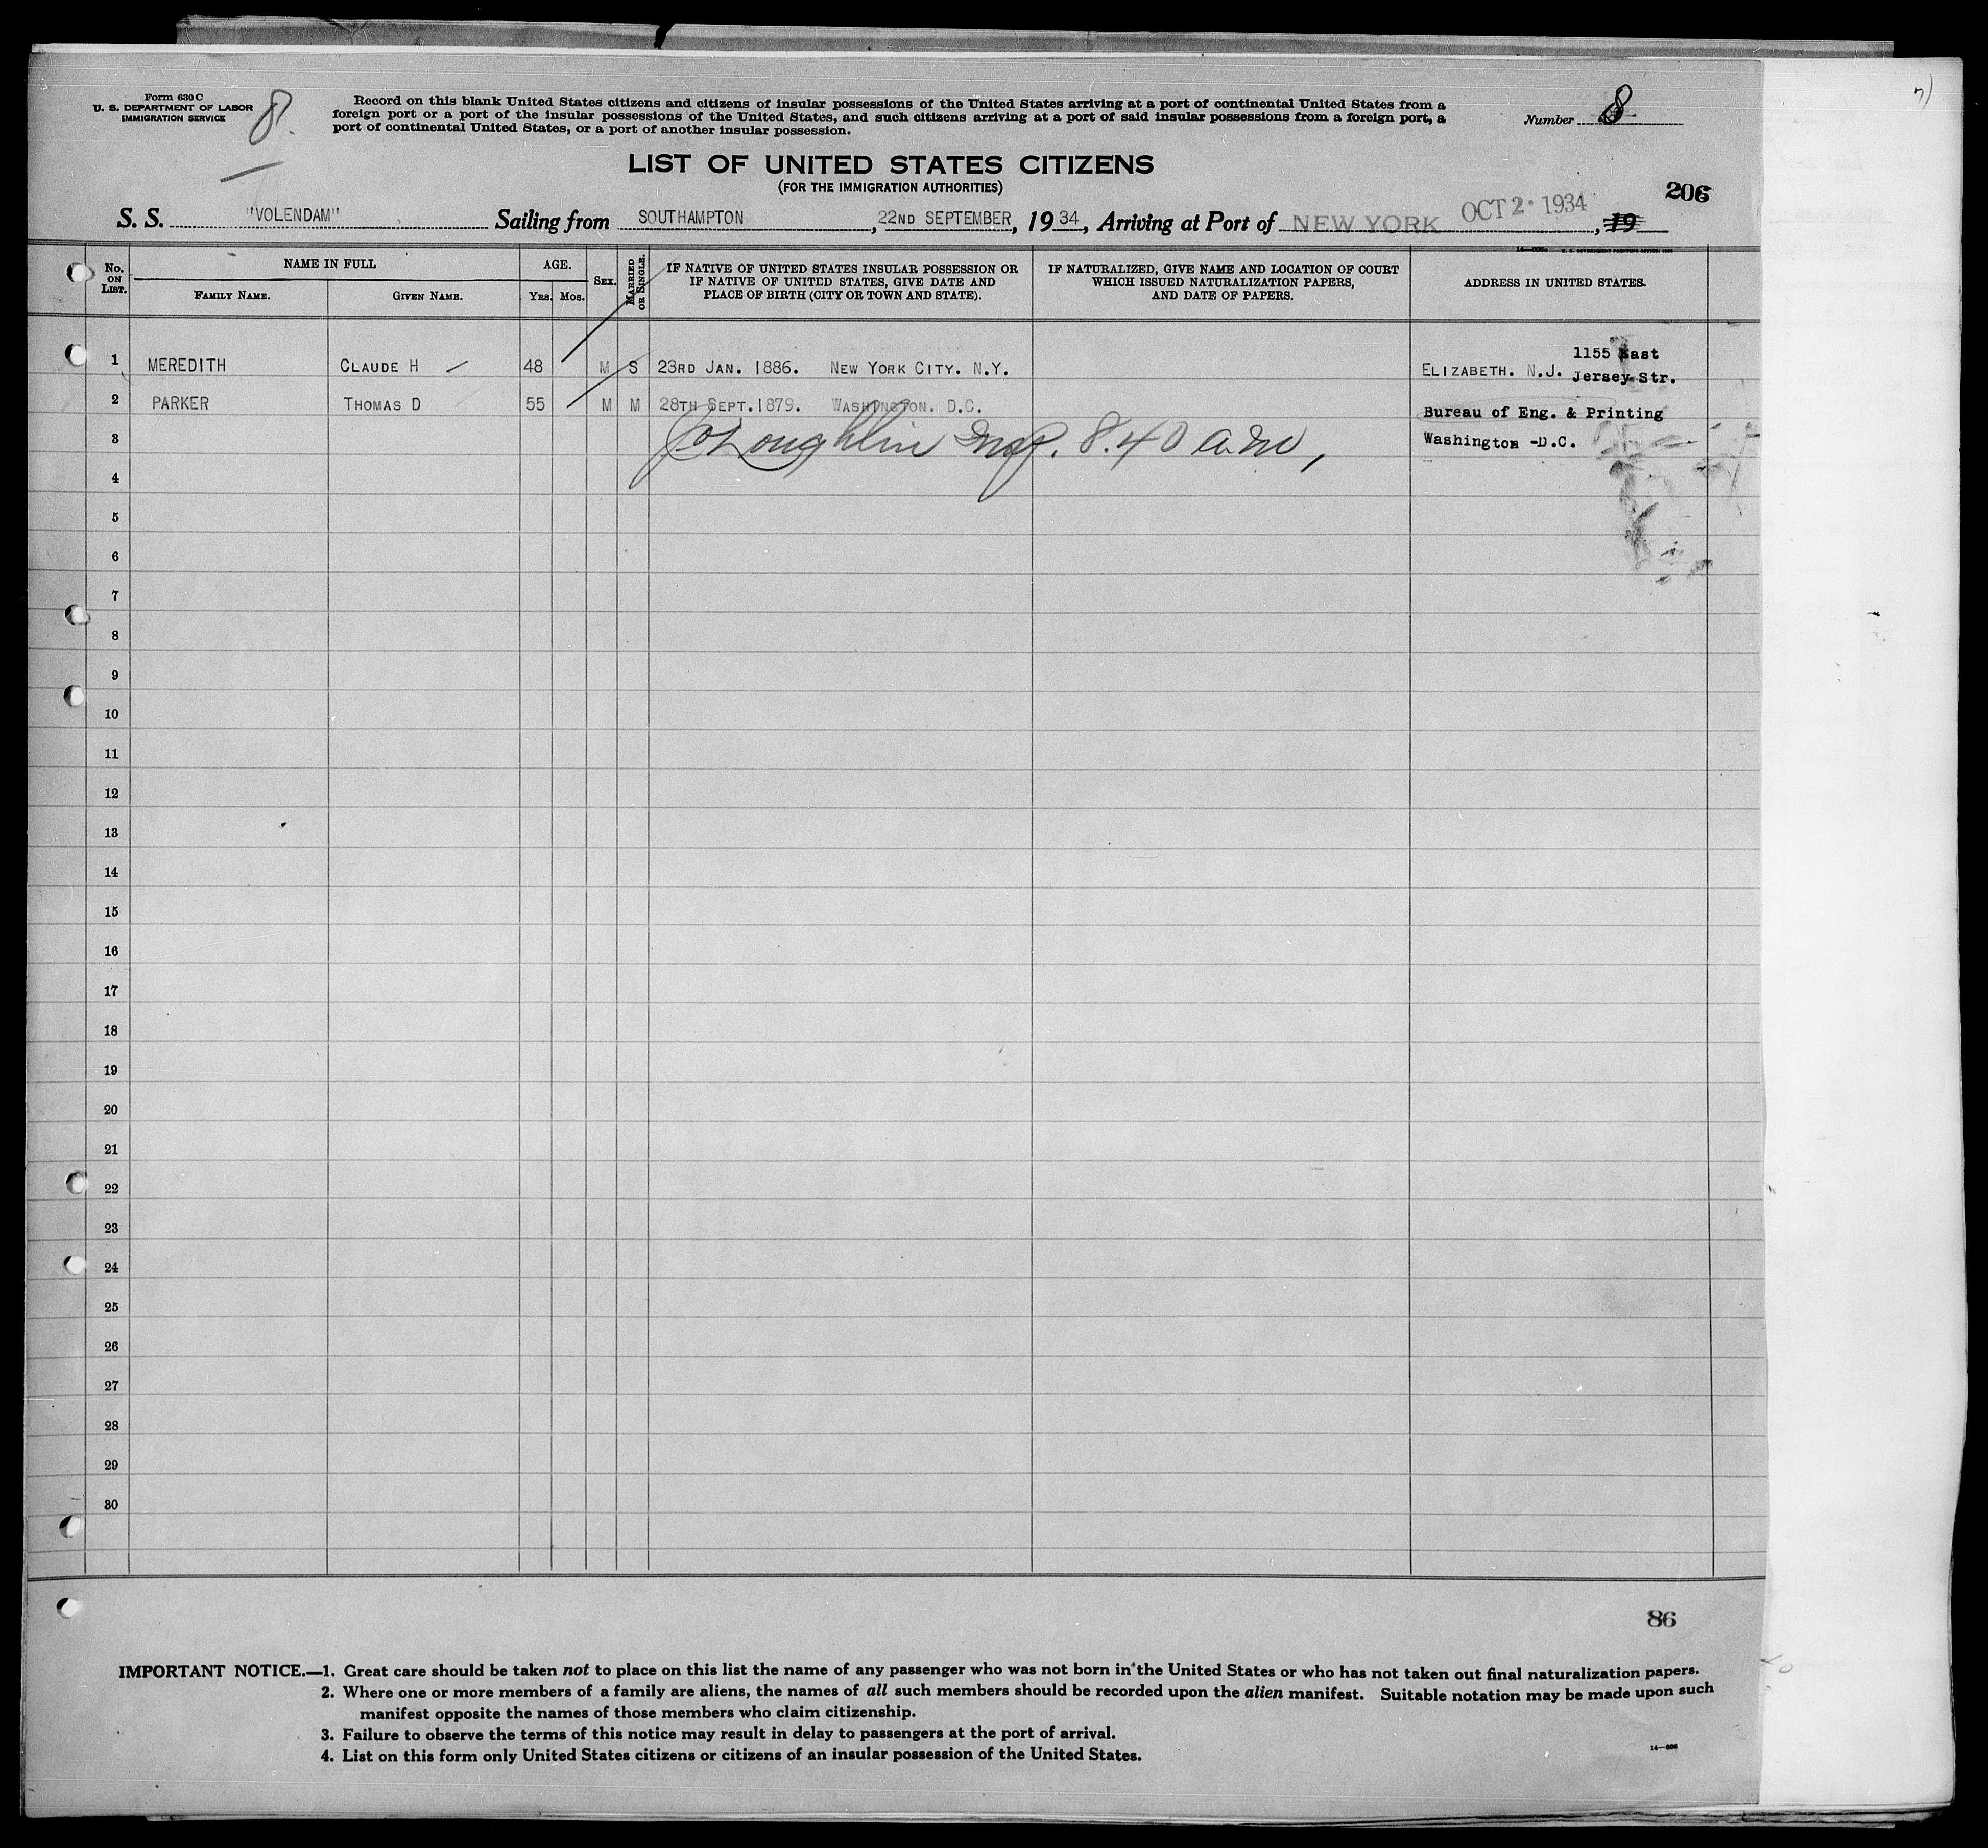 Form 630 C
U. S. DEPARTMENT OF LABOR
IMMIGRATION SERVICE
8.
Record on this blank United States citizens and citizens of insular possessions of the United States arriving at a port of continental United States from a
foreign port or a port of the insular possessions of the United States, and such citizens arriving at a port of said insular possessions from a foreign port, a
port of continental United States, or a port of another insular possession.
Number 8
LIST OF UNITED STATES CITIZENS
(FOR THE IMMIGRATION AUTHORITIES)
206
S. S. "VOLENDAM" Sailing from SOUTHAMPTON, 22ND SEPTEMBER, 1934, Arriving at Port of NEW YORK OCT 2 1934, 19
No. ON LIST. NAME IN FULL AGE. SEX. MARRIED OR SINGLE. IF NATIVE OF UNITED STATES INSULAR POSSESSION OR IF NATIVE OF UNITED STATES, GIVE DATE AND PLACE OF BIRTH (CITY OR TOWN AND STATE). IF NATURALIZED, GIVE NAME AND LOCATION OF COURT WHICH ISSUED NATURALIZATION PAPERS, AND DATE OF PAPERS. ADDRESS IN UNITED STATES.
FAMILY NAME. GIVEN NAME. YRS. MOS.
1 MEREDITH CLAUDE H 48 M S 23RD JAN. 1886. NEW YORK CITY. N.Y. ELIZABETH. N.J. 1155 East Jersey Str.
2 PARKER THOMAS D 55 M M 28TH SEPT. 1879. WASHINGTON. D.C. Bureau of Eng. & Printing
3 Loughlin Insp. 8.40 a.m, Washington -D.C.
4
5
6
7
8
9
10
11
12
13
14
15
16
17
18
19
20
21
22
23
24
25
26
27
28
29
30
86
IMPORTANT NOTICE.—1. Great care should be taken not to place on this list the name of any passenger who was not born in the United States or who has not taken out final naturalization papers.
2. Where one or more members of a family are aliens, the names of all such members should be recorded upon the alien manifest. Suitable notation may be made upon such
manifest opposite the names of those members who claim citizenship.
3. Failure to observe the terms of this notice may result in delay to passengers at the port of arrival.
4. List on this form only United States citizens or citizens of an insular possession of the United States.